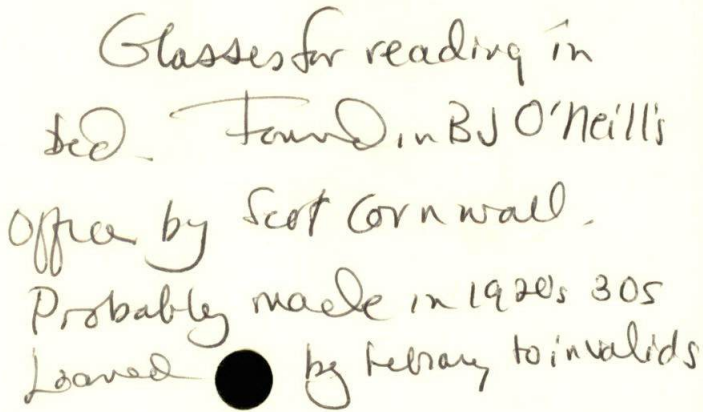 Glasses for reading in
bed. Found in BJ O'Neill's
Office by Scot Cornwall.
Probably made in 1920's 30s
Loaned by Library to invalids